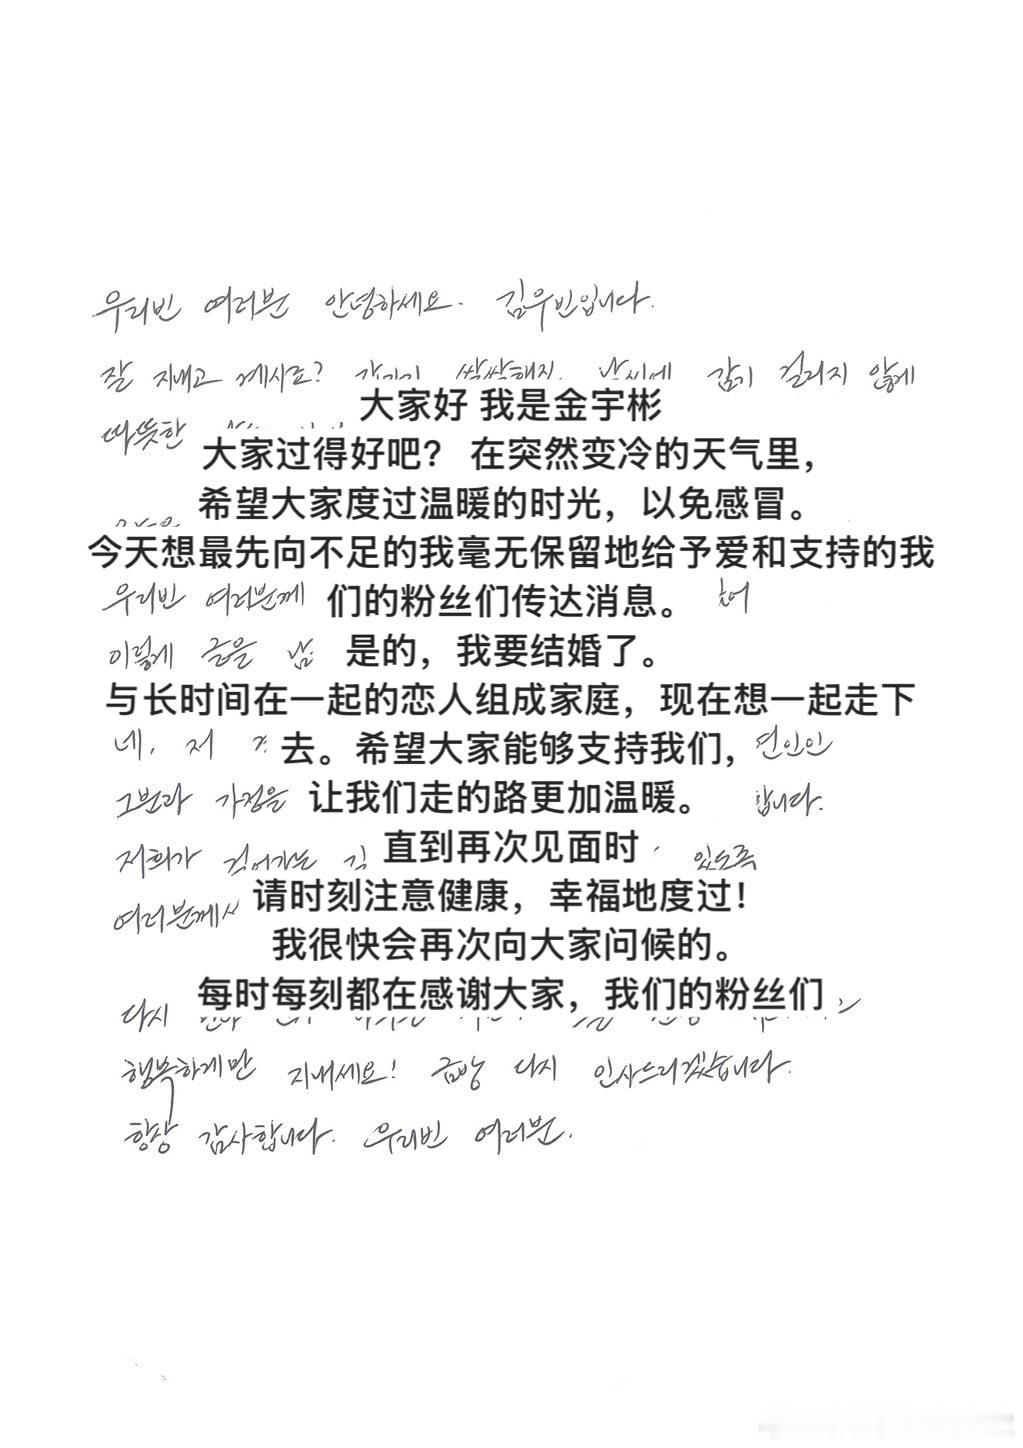 우리빈 여러분 안녕하세요. 김우빈입니다.
잘 지내고 계시죠? 갑자기 쌀쌀해진 날씨에 감기 걸리지 않게
大家好 我是金宇彬
따뜻한
大家过得好吧? 在突然变冷的天气里，
希望大家度过温暖的时光，以免感冒。
今天想最先向不足的我毫无保留地给予爱和支持的我
우리빈 여러분께 们的粉丝们传达消息。
이렇게 글을 是的，我要结婚了。
与长时间在一起的恋人组成家庭，现在想一起走下
네, 저 去。希望大家能够支持我们， 연인인
그분과 가정을 让我们走的路更加温暖。 합니다.
저희가 걸어가는 直到再次见面时
여러분께서 请时刻注意健康，幸福地度过!
我很快会再次向大家问候的。
每时每刻都在感谢大家，我们的粉丝们
다시
행복하게만 지내세요! 금방 다시 인사드리겠습니다.
항상 감사합니다. 우리빈 여러분.